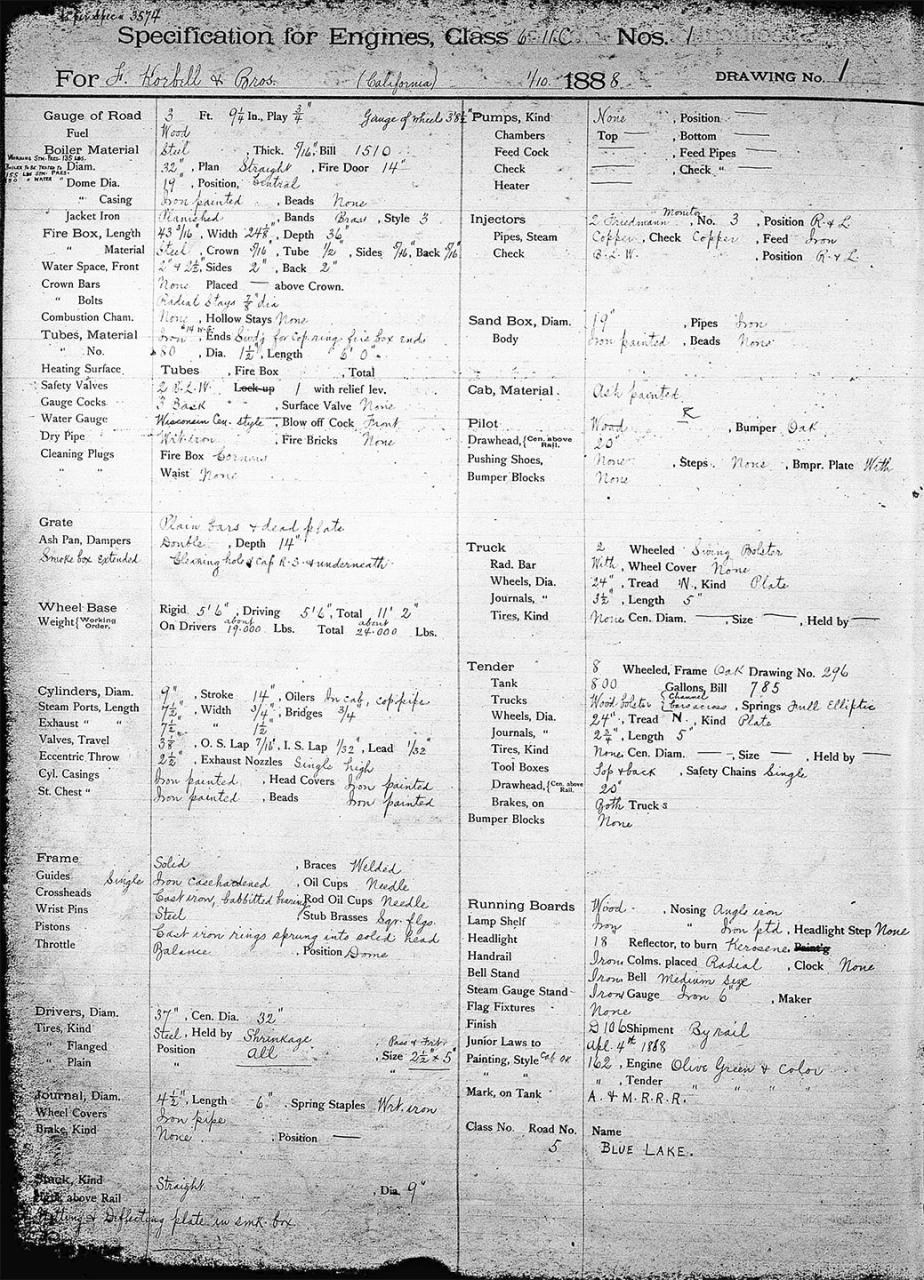 Specification for Engines, Class 6-11C Nos. 1
For F. Korbell & Bros. (California) 1/10. 1888 DRAWING No. 1
Gauge of Road 3 Ft. 9¼ In., Play ¾" Gauge of wheels 3' 8½"
Fuel Wood
WORKING STM-PRES-135 LBS.
Boiler Material Steel, Thick. 5/16", Bill 1510
BOILER TO BE TESTED TO 155 LBS STM-PRES-
180 " WATER "
" Diam. 32", Plan Straight, Fire Door 14"
" Dome Dia. 19", Position, Central
" Casing Iron painted, Beads None
Jacket Iron Planished, Bands Brass, Style 3
Fire Box, Length 43 3/16", Width 24⅞", Depth 36"
" Material Steel, Crown 5/16, Tube ½, Sides 5/16, Back 5/16
Water Space, Front 2" & 2½", Sides 2", Back 2"
Crown Bars None Placed — above Crown.
" Bolts Radial Stays ⅞" dia
Combustion Cham. None, Hollow Stays None
Tubes, Material Iron #14 W.G., Ends for cop. ring fire box end
" No. 80, Dia. 1½", Length 6' 0"
Heating Surface, Tubes , Fire Box , Total
Safety Valves 2 Lock-up 1 with relief lev.
Gauge Cocks 3 Back, Surface Valve None
Water Gauge Wisconsin Cen. style, Blow off Cock Front
Dry Pipe Wrt. iron, Fire Bricks None
Cleaning Plugs Fire Box Corners
" " Waist None
Grate Plain bars & dead plate
Ash Pan, Dampers Double, Depth 14"
Smoke box Extended Cleaning hole & cap R.S. & underneath
Wheel Base Rigid 5' 6", Driving 5' 6", Total 11' 2"
Weight {Working Order. On Drivers about 19.000 Lbs. Total about 24.000 Lbs.
Cylinders, Diam. 9", Stroke 14", Oilers In cab, cop. pipe
Steam Ports, Length 7½", Width ¾", Bridges ¾
Exhaust " " 7½" " 1½"
Valves, Travel 3⅞", O. S. Lap 7/16", I. S. Lap 1/32", Lead 1/32"
Eccentric Throw 2½", Exhaust Nozzles Single high
Cyl. Casings Iron painted, Head Covers Iron painted
St. Chest " Iron painted, Beads Iron painted
Frame Solid, Braces Welded
Guides Single Iron casehardened, Oil Cups Needle
Crossheads Cast iron, babbitted bearing, Rod Oil Cups Needle
Wrist Pins Steel {Stub Brasses Sqr. flgs.
Pistons Cast iron rings sprung into solid head
Throttle Balance, Position Dome
Drivers, Diam. 37", Cen. Dia. 32"
Tires, Kind Steel, Held by Shrinkage
" Flanged Position all, Size 2½" x 5"
" Plain " "
Journal, Diam. 4½", Length 6". Spring Staples Wrt. iron
Wheel Covers Iron pipe
Brake, Kind None, Position —
Stack, Kind Straight, Dia. 9"
above Rail
Netting & Deflecting plate in smk. box
Pumps, Kind None, Position —
Chambers Top —, Bottom —
Feed Cock —, Feed Pipes —
Check —, Check " —
Heater —
Injectors 2 Friedmann Monitor, No. 3, Position R & L
Pipes, Steam Copper, Check Copper, Feed Iron
Check B. L. W., Position R & L.
Sand Box, Diam. 19", Pipes Iron
Body Iron painted, Beads None
Cab, Material Ash painted
Pilot Wood R, Bumper Oak
Drawhead, {Cen. above Rail. 20"
Pushing Shoes, None, Steps. None, Bmpr. Plate With
Bumper Blocks None
Truck 2 Wheeled Swing Bolster
Rad. Bar With, Wheel Cover None
Wheels, Dia. 24", Tread N., Kind Plate
Journals, " 3½", Length 5"
Tires, Kind None Cen. Diam. —, Size —, Held by —
Tender 8 Wheeled, Frame Oak Drawing No. 296
Tank 800 Gallons, Bill 785
Trucks Wood bolster {Channel bars across, Springs Full Elliptic
Wheels, Dia. 24", Tread N., Kind Plate
Journals, " 2¾", Length 5"
Tires, Kind None Cen. Diam. —, Size —, Held by —
Tool Boxes Top & back, Safety Chains Single
Drawhead, {Cen. above Rail. 20"
Brakes, on Both Trucks
Bumper Blocks None
Running Boards Wood, Nosing Angle iron
Lamp Shelf Iron " Iron ptd, Headlight Step None
Headlight 18 Reflector, to burn Kerosene Paint'g
Handrail Iron Colms. placed Radial, Clock None
Bell Stand Iron Bell Medium size
Steam Gauge Stand Iron Gauge Iron 6", Maker
Flag Fixtures None
Finish D 106 Shipment By rail
Junior Laws to Apl. 4th 1888
Painting, Style 162, Engine Olive Green & color
" " ", Tender " " "
Mark, on Tank A. & M. R. R. R.
Class No. Road No. Name
5 BLUE LAKE.